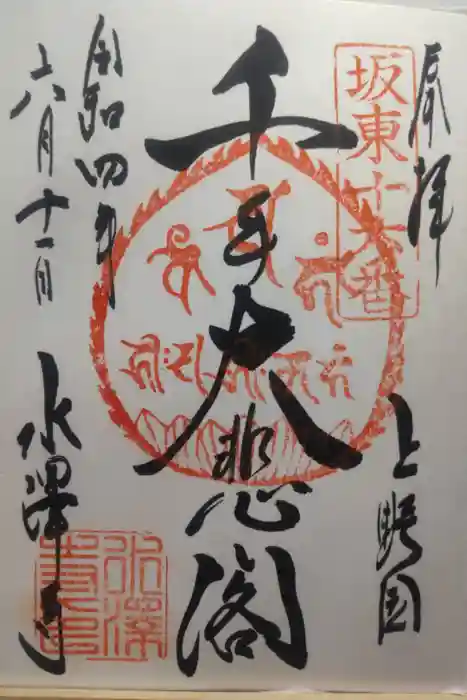 奉拝
坂東十六番
上野国
千手大悲閣
令和四年
六月十一日
水澤寺
水澤寺印